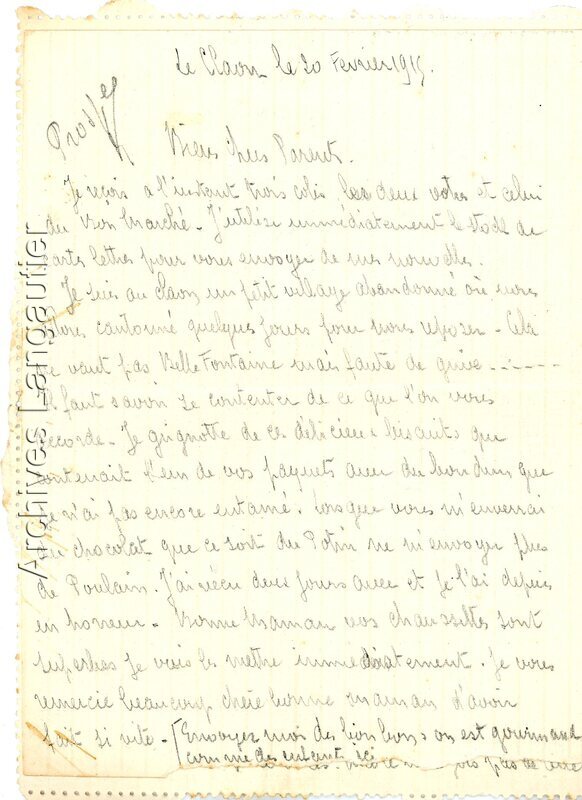 Le Claon le 20 Février 1915.
Biens chers Parent.
Je reçois a l'instant trois colis les deux votres et celui
du Bon Marché. J'utilise immédiatement le stock de
cartes lettres pour vous envoyer de mes nouvelles.
Je suis au Claon un petit village abandonné où nous
sommes cantonné quelques jours pour nous reposer - Cela
ne vaut pas Belle Fontaine mais faute de grive - - - -
Il faut savoir se contenter de ce que l'on vous
accorde - Je grignotte de ces délicieux biscuits que
contenait l'un de vos paquets avec du bon que
je n'ai pas encore entamé. Lorsque vous m'enverrai
du chocolat que ce soit du Potin ne m'envoyer plus
de Poulain. J'ai vécu deux jours avec et je l'ai depuis
en horreur - Bonne Maman vos chaussettes sont
superbes je vais les mettre immédiatement. Je vous
remercie beaucoup chère bonne maman d'avoir
fait si vite - [Envoyez moi des bon bons on est gourmand
comme des enfants ici
Archives Langautier